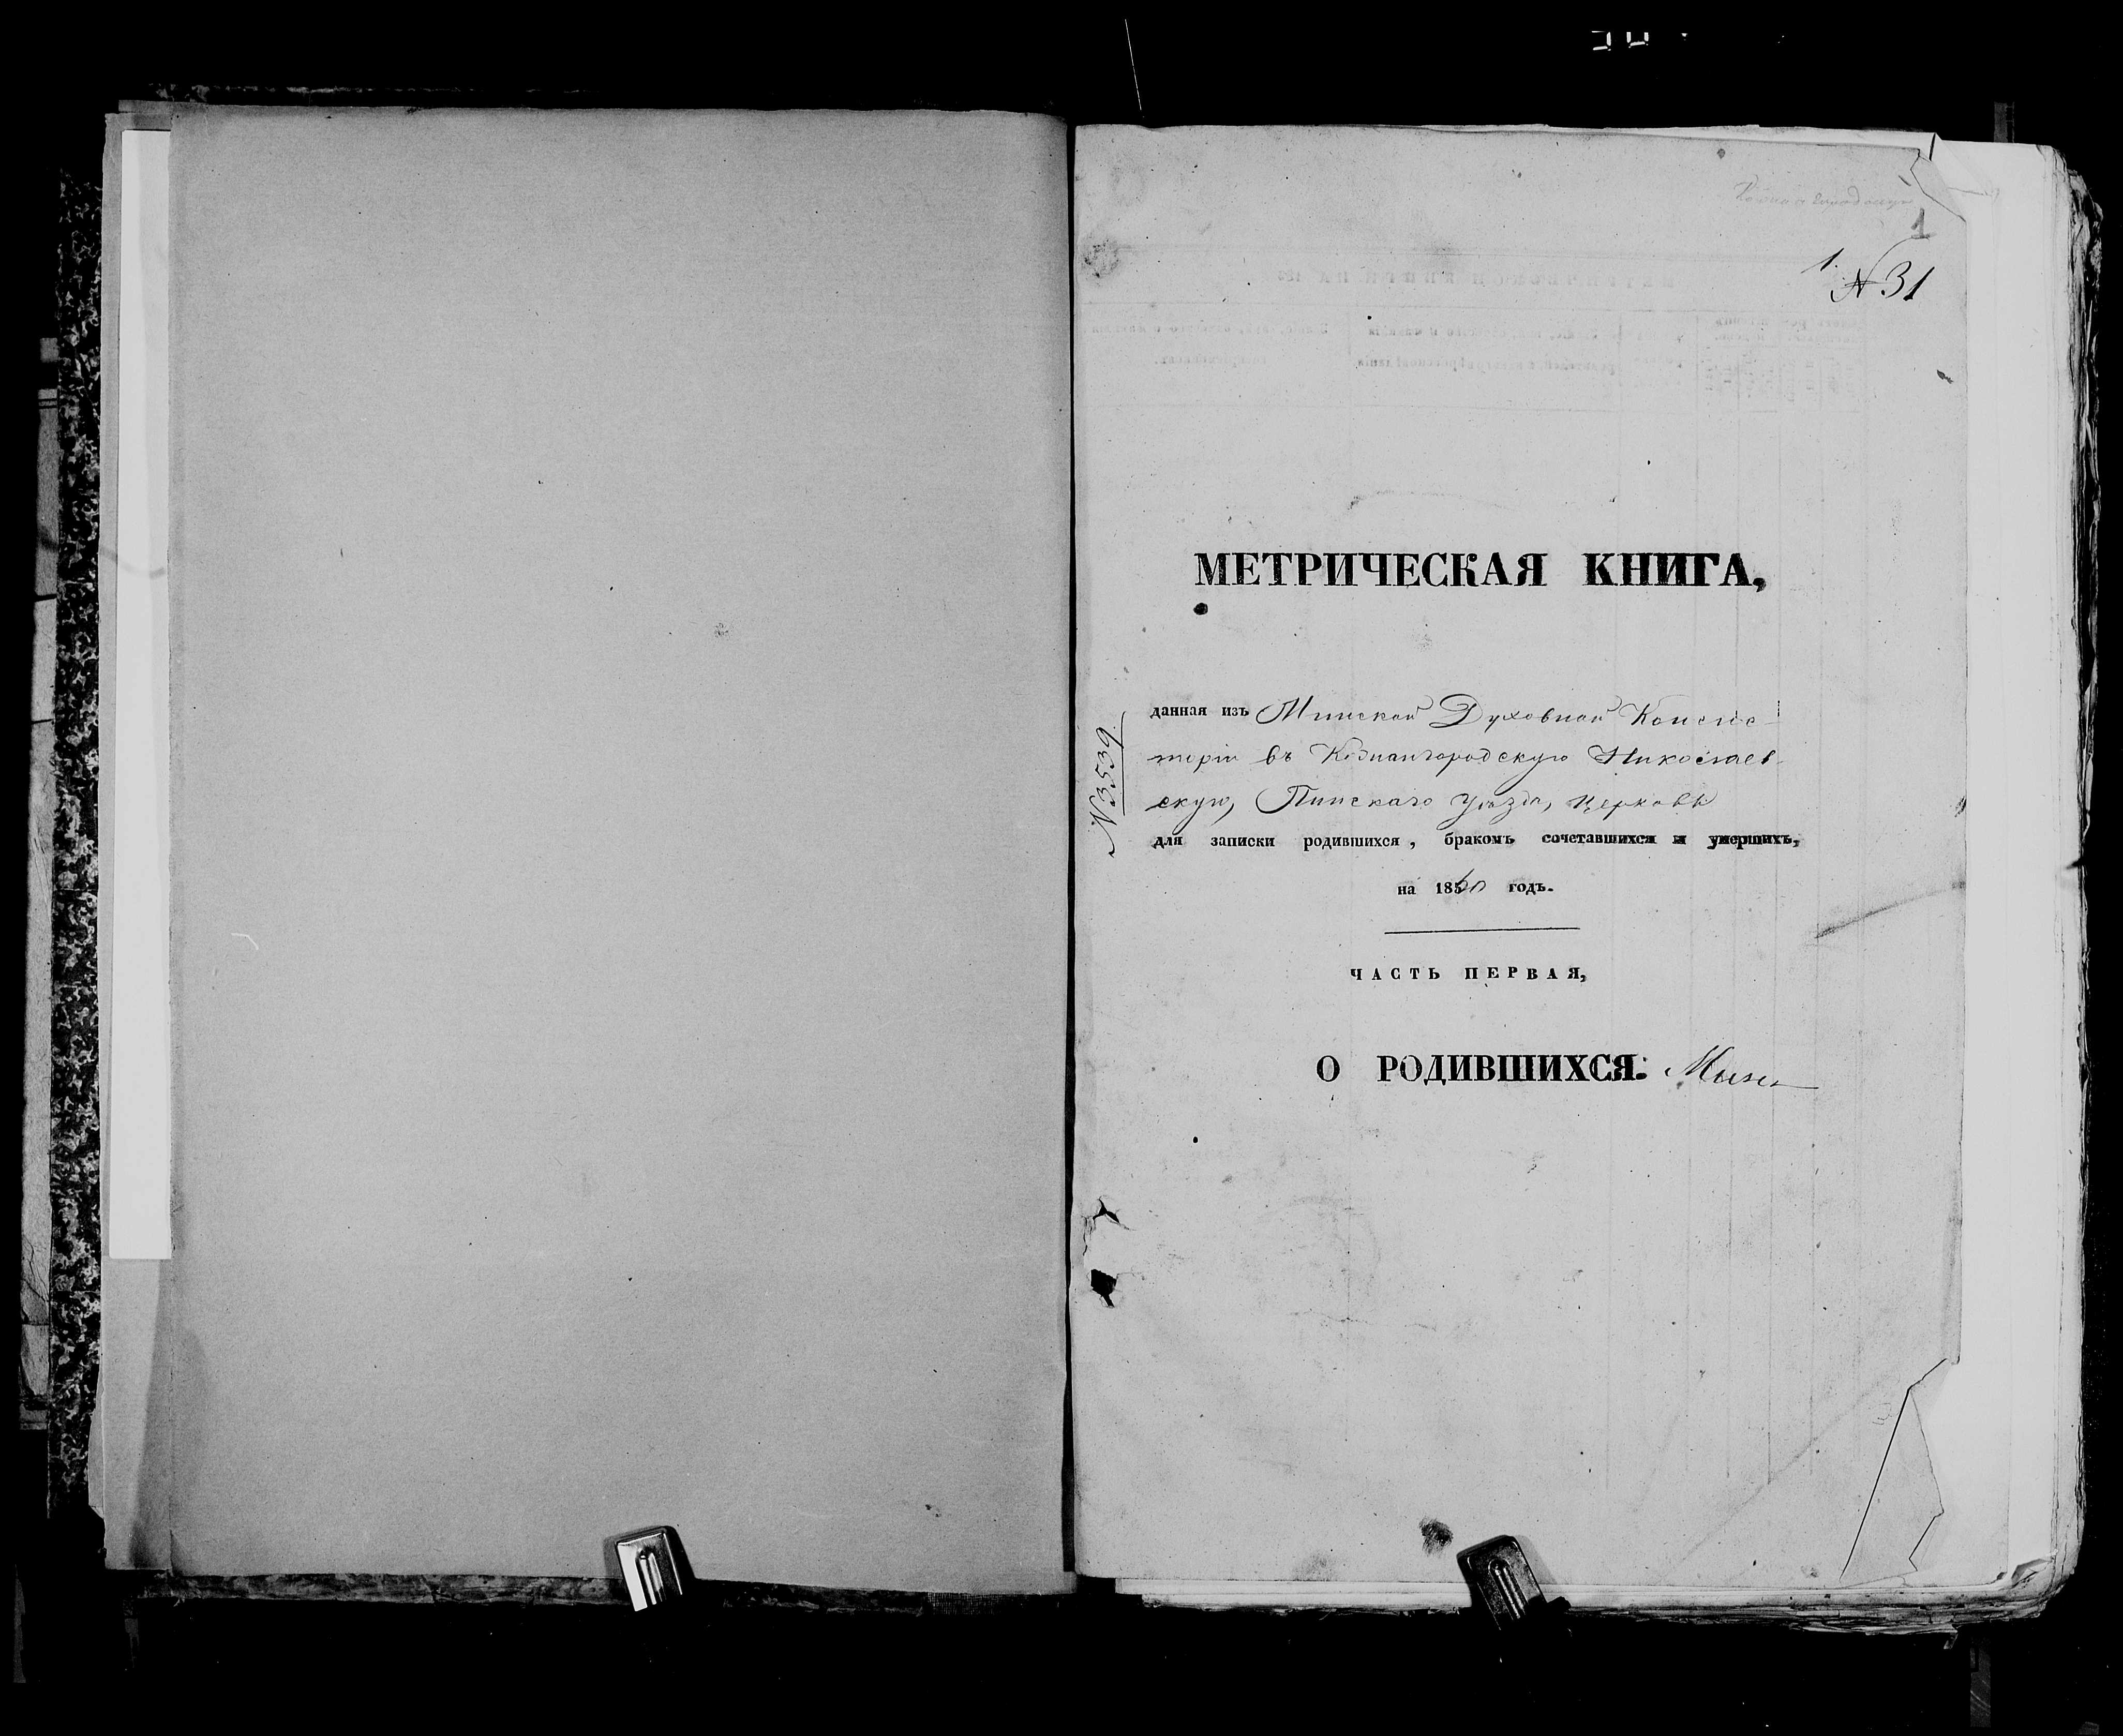 1
1.
№ 31
МЕТРИЧЕСКАЯ КНИГА,
№ 3539
данная изъ Минской Духовной Консис-
торіи въ Кожангородскую Николаев-
скую, Пинскаго уѣзда, церковь
для записки родившихся, бракомъ сочетавшихся и умершихъ,
на 1860 годъ.
ЧАСТЬ ПЕРВАЯ,
О РОДИВШИХСЯ: